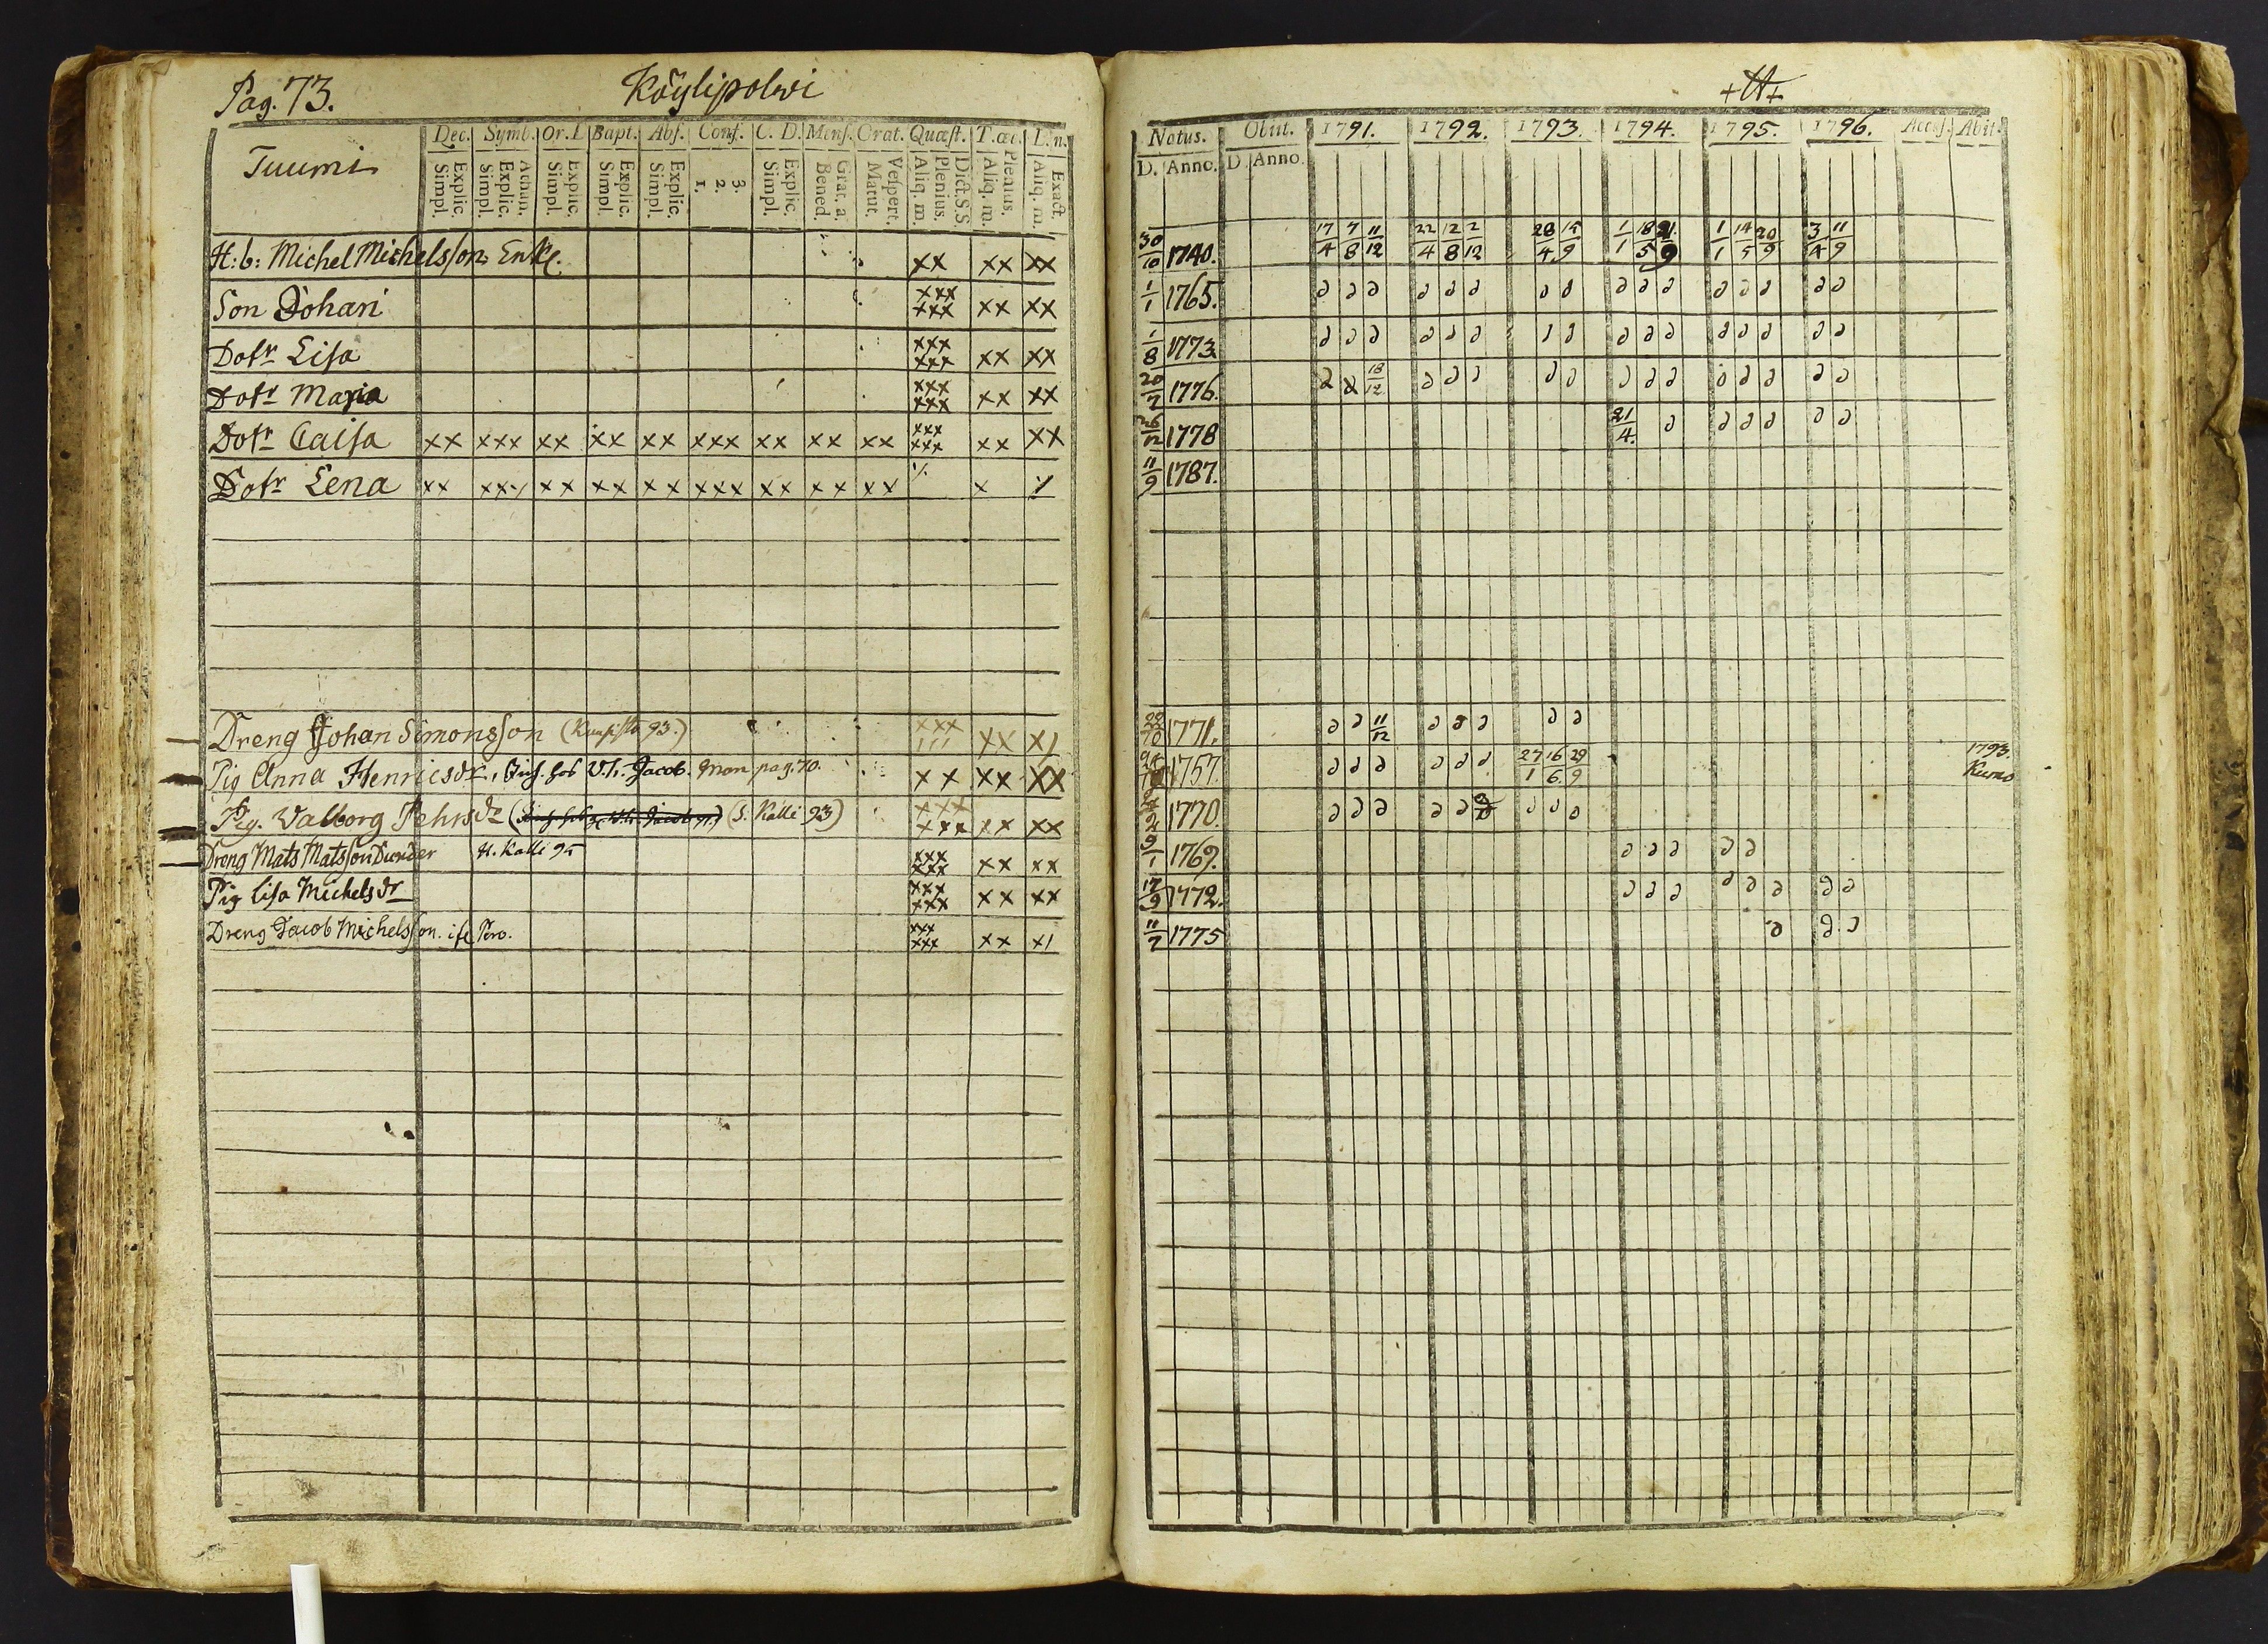 Pag. 73. Köylipolwi
Dec. Symb. Or. D Bapt. Abs. Conf. C. D. Mens. Orat. Quæst. T. æc. L. n.
Tuumi Explic. Simpl. Athan. Explic. Simpl. Explic. Simpl. Explic. Simpl. Explic. Simpl. 3. 2. 1. Explic. Simpl. Grat. a. Bened. Vespert. Matut. Dict. S. S. Plenius. Aliq. m. Plenius. Aliq. m. Exact. Aliq. m.
H: b: Michel Michelssons Enka. xx xx xx
Son Johan xxx xxx xx xx
Dotr Lisa xxx xxx xx xx
Dotr Maria xxx xxx xx xx
Dotr Caisa xx xxx xx xx xx xxx xx xx xx xxx xxx xx xx
Dotr Lena xx xx xx xx xx xxx xx xx xx x
Dreng Johan Simonsson (Kuusisto 93.) xxx xx x/
Pig Anna Henricsdr. Jacob. pag. 70. xx xx xx
Pig. Walborg Pehrsdr (S. Kalli 93) xxx xxx xx xx
Dreng Mats Matsson Dunder H. Kalli 95 xxx xxx xx xx
Pig Lisa Michelsdr xxx xxx xx xx
Dreng Jacob Michelsson. xxx xxx xx x/
Natus. Obiit. 1791. 1792. 1793. 1794. 1795. 1796. Access. Abit.
D. Anno. D. Anno.
30/10 1740. 17/4 7/8 11/12 22/4 12/8 2/12 28/4 15/9 1/1 18/5 21/9 1/1 14/5 20/9 3/4 11/9
1/1 1765. ∂ ∂ ∂ ∂ ∂ ∂ ∂ ∂ ∂ ∂ ∂ ∂ ∂ ∂ ∂ ∂
1/8 1773 ∂ ∂ ∂ ∂ ∂ ∂ ∂ ∂ ∂ ∂ ∂ ∂ ∂ ∂ ∂ ∂
20/7 1776. ∂ 18/12 ∂ ∂ ∂ ∂ ∂ ∂ ∂ ∂ ∂ ∂ ∂ ∂ ∂
26/12 1778 21/4. ∂ ∂ ∂ ∂ ∂ ∂
11/9 1787.
1771. ∂ ∂ 11/12 ∂ ∂ ∂ ∂ ∂
1757. ∂ ∂ ∂ ∂ ∂ ∂ 27/1 16/6 29/9 1793. Kumo
1770. ∂ ∂ ∂ ∂ ∂ ∂ ∂ ∂
9/1 1769. ∂ ∂ ∂ ∂ ∂
17/9 1772. ∂ ∂ ∂ ∂ ∂ ∂ ∂ ∂
11/7 1775 ∂ ∂ ∂